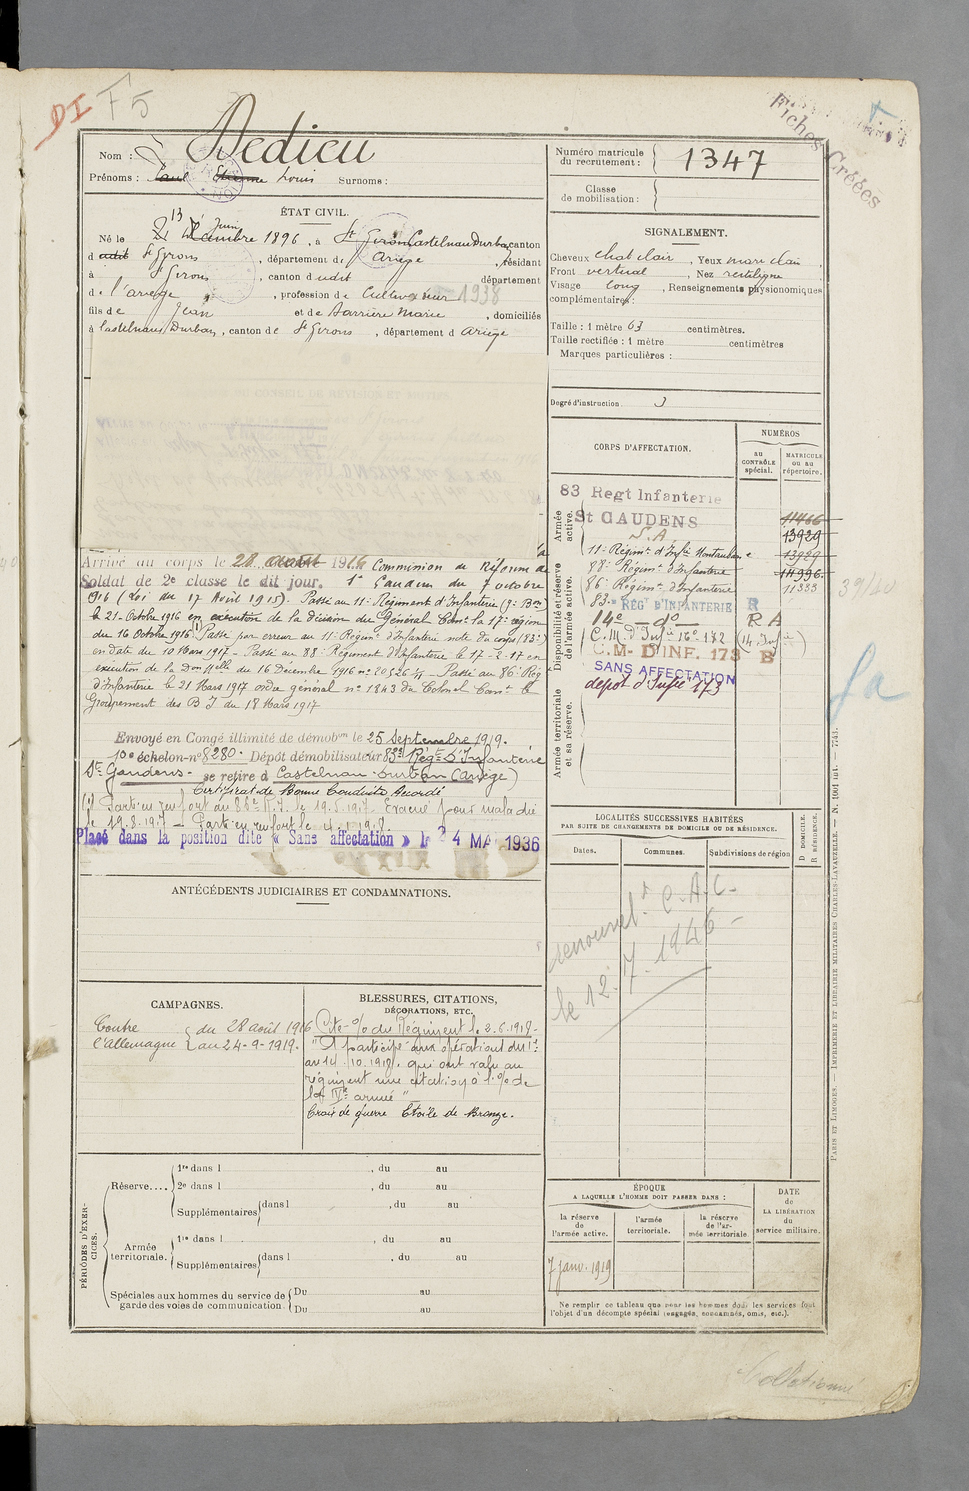 DI F5
Fiches Créées
Nom : Dedieu
Prénoms : Paul Etienne Louis Surnoms :
Numéro matricule du recrutement : 1347
Classe de mobilisation :
ÉTAT CIVIL.
Né le 13 Juin 1896, à Castelnau Durban, canton
d St Girons, département de Ariège, résidant
à St Girons, canton dudit département
de l'ariège, profession de Cultivateur 1938
fils de Jean et de Barrière Marie, domiciliés
à Castelnau Durban, canton de St Girons, département d Ariège
SIGNALEMENT.
Cheveux chat clair, Yeux marr clair,
Front vertical, Nez rectiligne
Visage long, Renseignements physionomiques
complémentaires :
Taille : 1 mètre 63 centimètres.
Taille rectifiée : 1 mètre centimètres
Marques particulières :
Degré d'instruction. 3
CORPS D'AFFECTATION.
NUMÉROS
au CONTRÔLE spécial.
MATRICULE ou au répertoire.
Armée active.
83 Regt Infanterie
St GAUDENS
S.A.
11466
13929
11e Régimt d'Infie Montauban 13929
88e Régimt d'Infanterie 14996
86e Régimt d'Infanterie 11383
39/40
Disponibilité et réserve de l'armée active.
83e REGt D'INFANTERIE R
14e — do — R A
C.M. D'Infie 16e 172 (14 Infie)
C.M- D'INF. 173 B
SANS AFFECTATION
dépot d'Infie 173
Armée territoriale et sa réserve.
Arrivé au corps le 28 août 1916 Commission de Réforme de
Soldat de 2e classe le dit jour. St Gaudens du 7 octobre
1916 (Loi du 17 Avril 1915). Passé au 11e Régiment d'Infanterie (9e Bon)
le 21-Octobre 1916 en exécution de la décision du Général Comt la 17e région
du 16 Octobre 1916. Passé par erreur au 11e Régimt d'Infanterie note du corps (83e)
en date du 10 Mars 1917 - Passé au 88e Régiment d'Infanterie le 17-2-17 en
exécution de la Don Melle du 16 Décembre 1916 no 20526 1/1 Passé au 86e Rég
d'Infanterie le 21 Mars 1917 ordre général no 1843 du Colonel Comt le
Groupement des B I du 18 Mars 1917
Envoyé en Congé illimité de démobon le 25 Septembre 1919.
10e échelon no 8280 Dépôt démobilisateur 83e Régt d'Infanterie
St Gaudens - se retire à Castelnau Durban (Ariège)
Certificat de Bonne Conduite Accordé
(1) Parti en renfort au 86e R.I. le 19.5.1917. Evacué pour maladie
le 19.8.1917 - Parti en renfort le 1918
Placé dans la position dite « Sans affectation » le 24 MAI 1936
ANTÉCÉDENTS JUDICIAIRES ET CONDAMNATIONS.
LOCALITÉS SUCCESSIVES HABITÉES
PAR SUITE DE CHANGEMENTS DE DOMICILE OU DE RÉSIDENCE.
Dates. Communes. Subdivisions de région
D DOMICILE. R RÉSIDENCE.
renouvelt C.A.C-
le 12.7.1946-
CAMPAGNES.
Contre l'allemagne { du 28 août 1916 au 24-9-1919.
BLESSURES, CITATIONS, DÉCORATIONS, ETC.
Cité % du Régiment le 2.6.1918-
"A participé aux opérations du 1er
au 14.10.1918, qui ont valu au
régiment une citation à l'% de
la IVe armée"
Croix de guerre Etoile de Bronze.
PÉRIODES D'EXERCICES.
Réserve....
1re dans l , du au
2e dans l , du au
Supplémentaires dans l , du au
Armée territoriale.
1re dans l , du au
Supplémentaires dans l , du au
Spéciales aux hommes du service de garde des voies de communication.
Du au
Du au
ÉPOQUE
A LAQUELLE L'HOMME DOIT PASSER DANS :
la réserve de l'armée active.
l'armée territoriale.
la réserve de l'armée territoriale
DATE de LA LIBÉRATION du service militaire.
7 janv. 1919
Ne remplir ce tableau que pour les hommes dont les services font
l'objet d'un décompte spécial (engagés, condamnés, omis, etc.).
PARIS ET LIMOGES. — IMPRIMERIE ET LIBRAIRIE MILITAIRES CHARLES-LAVAUZELLE. — N. 1001 tut. — 7743.
Collationné